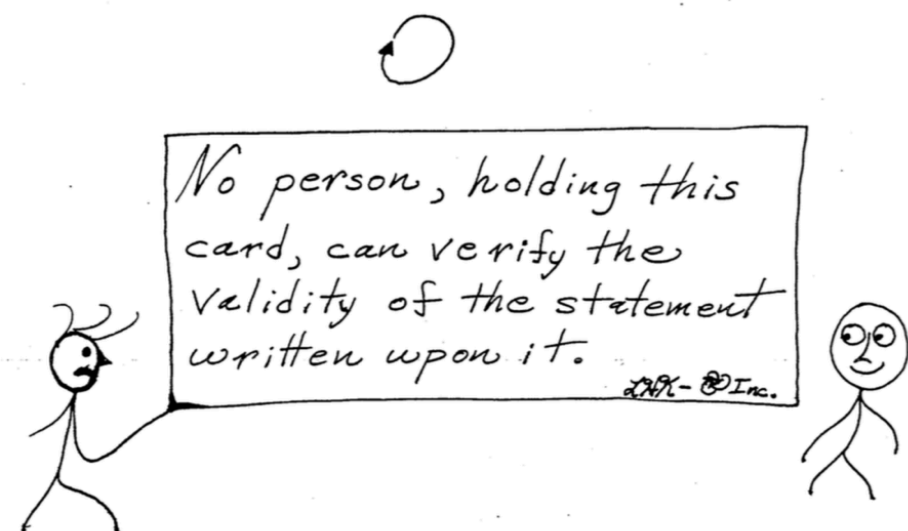 No person, holding this
card, can verify the
validity of the statement
written upon it.
Inc.